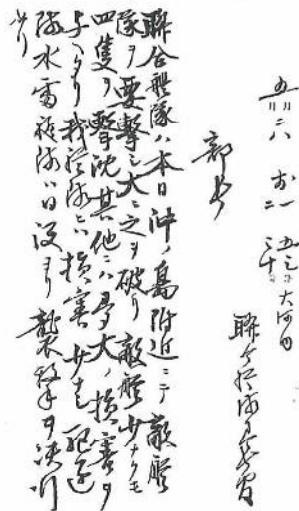 部長
聯合艦隊ハ本日沖ノ島附近ニテ敵艦
隊ヲ要撃シ大ニ之ヲ破リ敵艦少ナクモ
四隻ヲ撃沈其他ニハ多大ノ損害ヲ
与ヘタリ我艦隊ニハ損害少ナシ駆逐
隊水雷艇隊ハ日没ヨリ襲撃ヲ決行
セリ